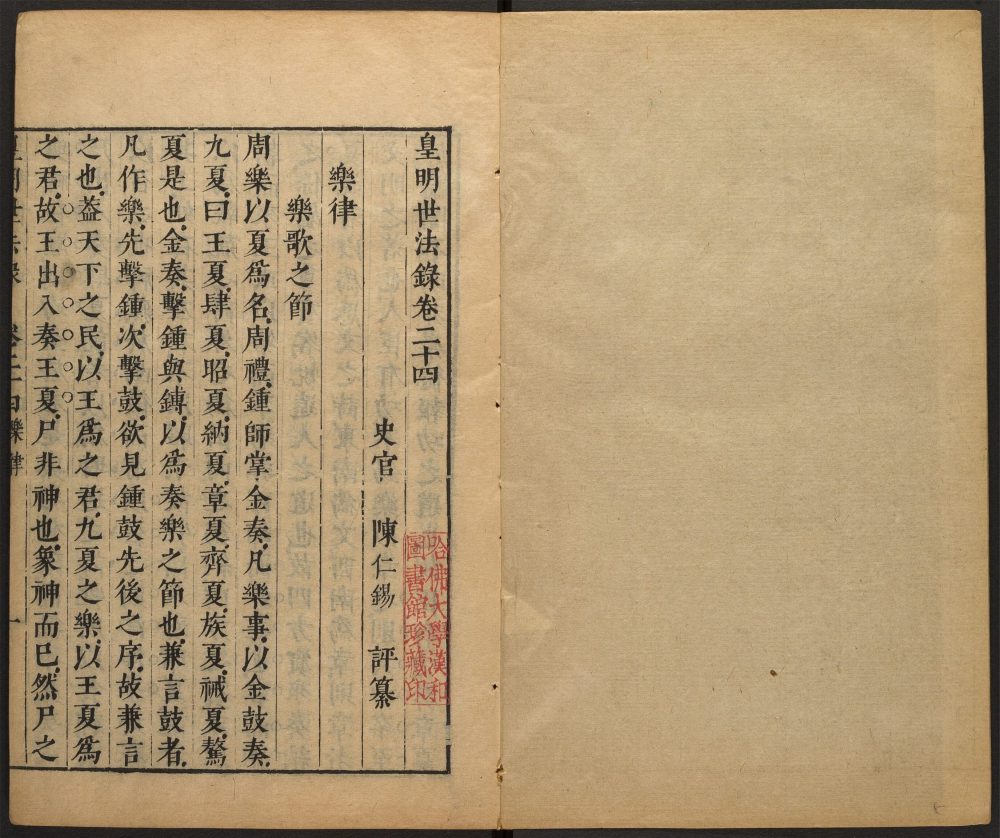 皇明世法錄卷二十四
史官 陳仁錫 評纂
樂律
樂歌之節
周樂以夏爲名周禮鍾師掌金奏凡樂事以金鼓奏
九夏曰王夏肆夏昭夏納夏章夏齊夏族夏祴夏驁
夏是也金奏擊鍾與鎛以爲奏樂之節也兼言鼓者
凡作樂先擊鍾次擊鼓欲見鍾鼓先後之序故兼言
之也葢天下之民以王爲之君九夏之樂以王夏爲
之君故王出入奏王夏尸非神也象神而已然尸之
皇明世法錄 卷二十四 樂律 一
哈佛大學漢和
圖書館珍藏印